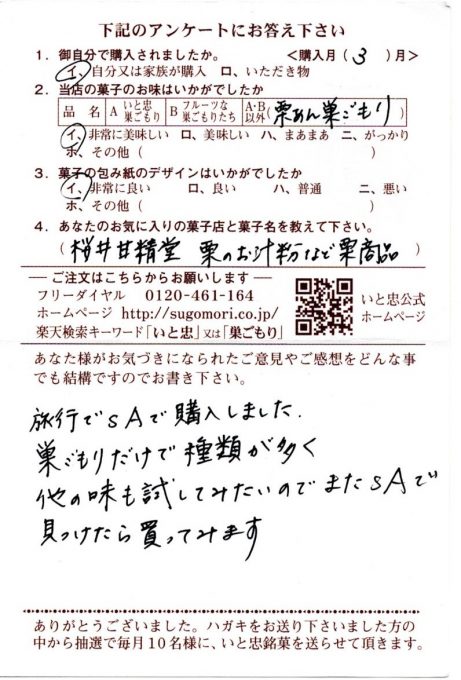 下記のアンケートにお答え下さい
1. 御自分で購入されましたか。 <購入月( 3 )月>
イ、自分又は家族が購入 ロ、いただき物
2. 当店の菓子のお味はいかがでしたか
品 名 A いと忠巣ごもり B フルーツな巣ごもりたち A・B以外(栗あん巣ごもり)
イ、非常に美味しい ロ、美味しい ハ、まあまあ ニ、がっかり
ホ、その他( )
3. 菓子の包み紙のデザインはいかがでしたか
イ、非常に良い ロ、良い ハ、普通 ニ、悪い
ホ、その他( )
4. あなたのお気に入りの菓子店と菓子名を教えて下さい。
(桜井甘精堂 栗のお汁粉など栗商品)
── ご注文はこちらからお願いします ──
フリーダイヤル 0120-461-164
ホームページ http://sugomori.co.jp/
楽天検索キーワード「いと忠」又は「巣ごもり」
いと忠公式
ホームページ
あなた様がお気づきになられたご意見やご感想をどんな事
でも結構ですのでお書き下さい。
旅行でSAで購入しました.
巣ごもりだけで種類が多く
他の味も試してみたいのでまたSAで
見つけたら買ってみます
ありがとうございました。ハガキをお送り下さいました方の
中から抽選で毎月10名様に、いと忠銘菓を送らせて頂きます。